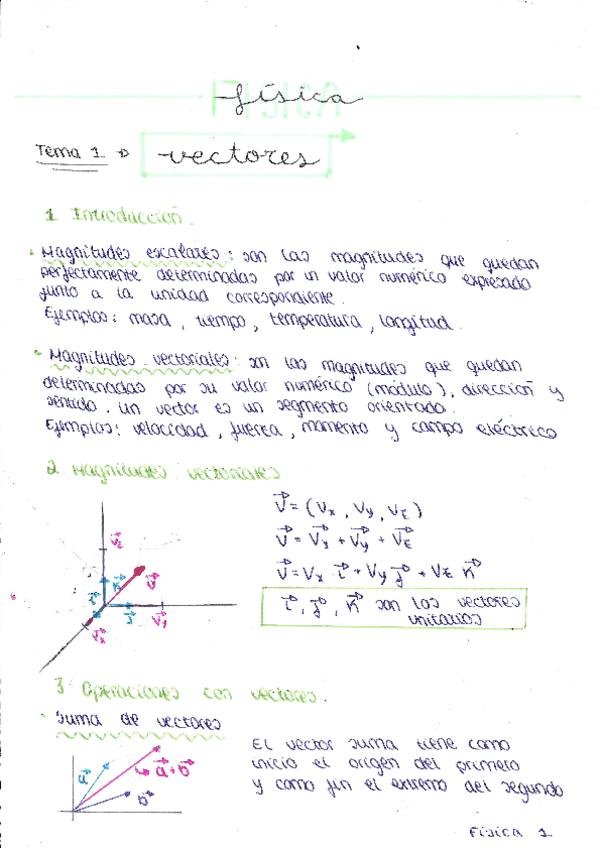 física
Tema 1 → vectores
1 Introducción.
· Magnitudes escalares: son las magnitudes que quedan
perfectamente determinadas por un valor numérico expresado
junto a la unidad correspondiente.
Ejemplos: masa, tiempo, temperatura, longitud.
· Magnitudes vectoriales: son las magnitudes que quedan
determinadas por su valor numérico (módulo), dirección y
sentido. Un vector es un segmento orientado.
Ejemplos: velocidad, fuerza, momento y campo eléctrico
2 Magnitudes vectoriales
V⃗ = (Vx, Vy, Vz)
V⃗ = V⃗x + V⃗y + V⃗z
V⃗ = Vx · i⃗ + Vy j⃗ + Vz k⃗
i⃗, j⃗, k⃗ son los vectores
unitarios
3 Operaciones con vectores.
· Suma de vectores
El vector suma tiene como
inicio el origen del primero
y como fin el extremo del segundo
a⃗
↳ a⃗ + b⃗
b⃗
Física 1